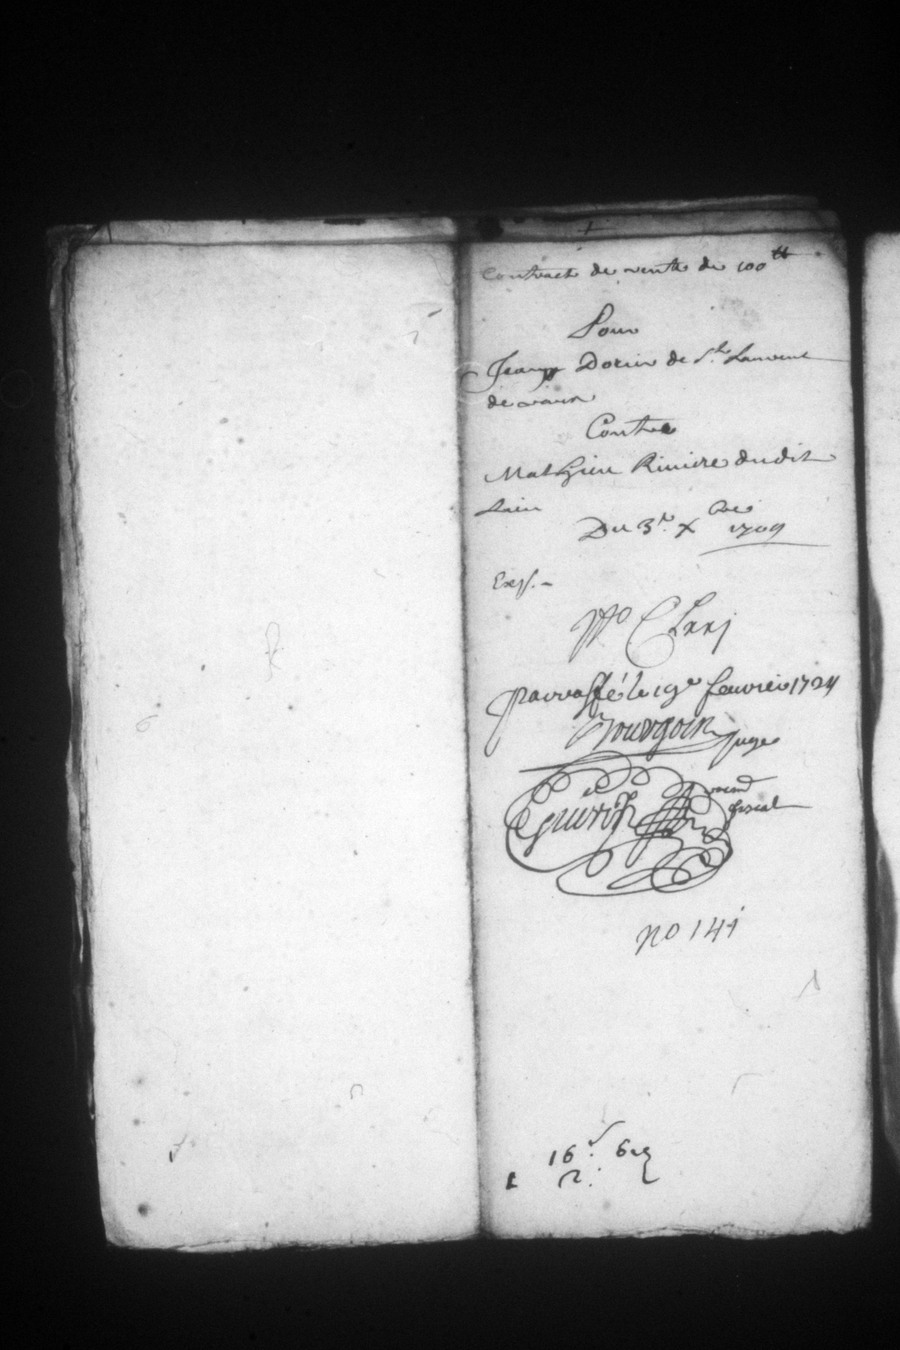 Contract de vente de 100tt
Pour
Jean Dorin de St. Laurent
de
Contre
Mathieu Riviere dudit
Lieu
Du 3e. Xbre
1709
Exp.
No C Lxxj
Parraffé le 19e feurier 1724
Bourgoin Juge
fiscal
no 141
16 s 6 d